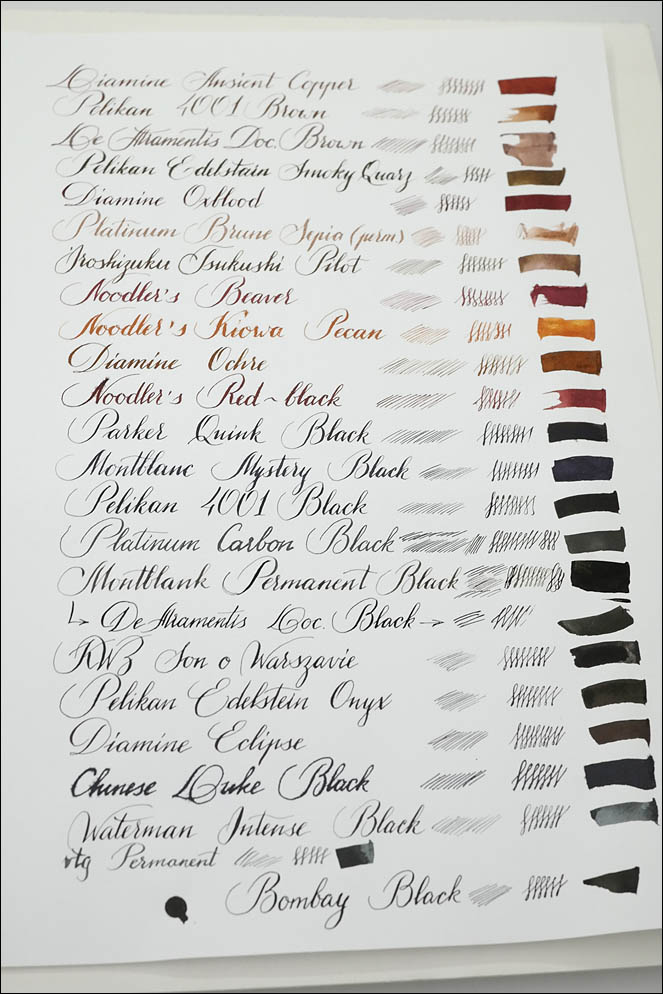 Diamine Ansient Copper
Pelikan 4001 Brown
De Atramentis Doc. Brown
Pelikan Edelstain Smoky Quarz
Diamine Oxblood
Platinum Brune Sepia (perm)
Iroshizuku Tsukushi Pilot
Noodler's Beaver
Noodler's Kiowa Pecan
Diamine Ochre
Noodler's Red~black
Parker Quink Black
Montblanc Mystery Black
Pelikan 4001 Black
Platinum Carbon Black
Montblank Permanent Black
↳ De Atramentis Doc. Black →
KWZ Sen o Warszavie
Pelikan Edelstein Onyx
Diamine Eclipse
Chinese Duke Black
Waterman Intense Black
vtg Permanent
Bombay Black